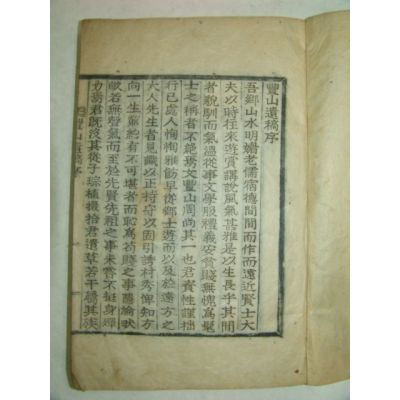 豐山遺稿序
吾鄉山水明媚老儒宿德間間而作而遠近賢士大
夫以時往來遊賞講說風氣甚雅是以生長乎其間
者貌馴而氣溫從事文學服禮義安貧賤無愧爲髦
士之稱者不絶焉文豐山周尚其一也君資性謹拙
行已處人恂恂雅飭早從鄉士遊而以及於遠方之
大人先生者見識以正持守以固引誘村秀俾知方
向一生窮約有不可堪者而恥爲苟賤之事論論状
歟若無聲氣而至於先賢先祖之事未嘗不挺身殫
力焉君既沒其從子琮植掇拾君遺草若干篇其族
豐山遺稿序